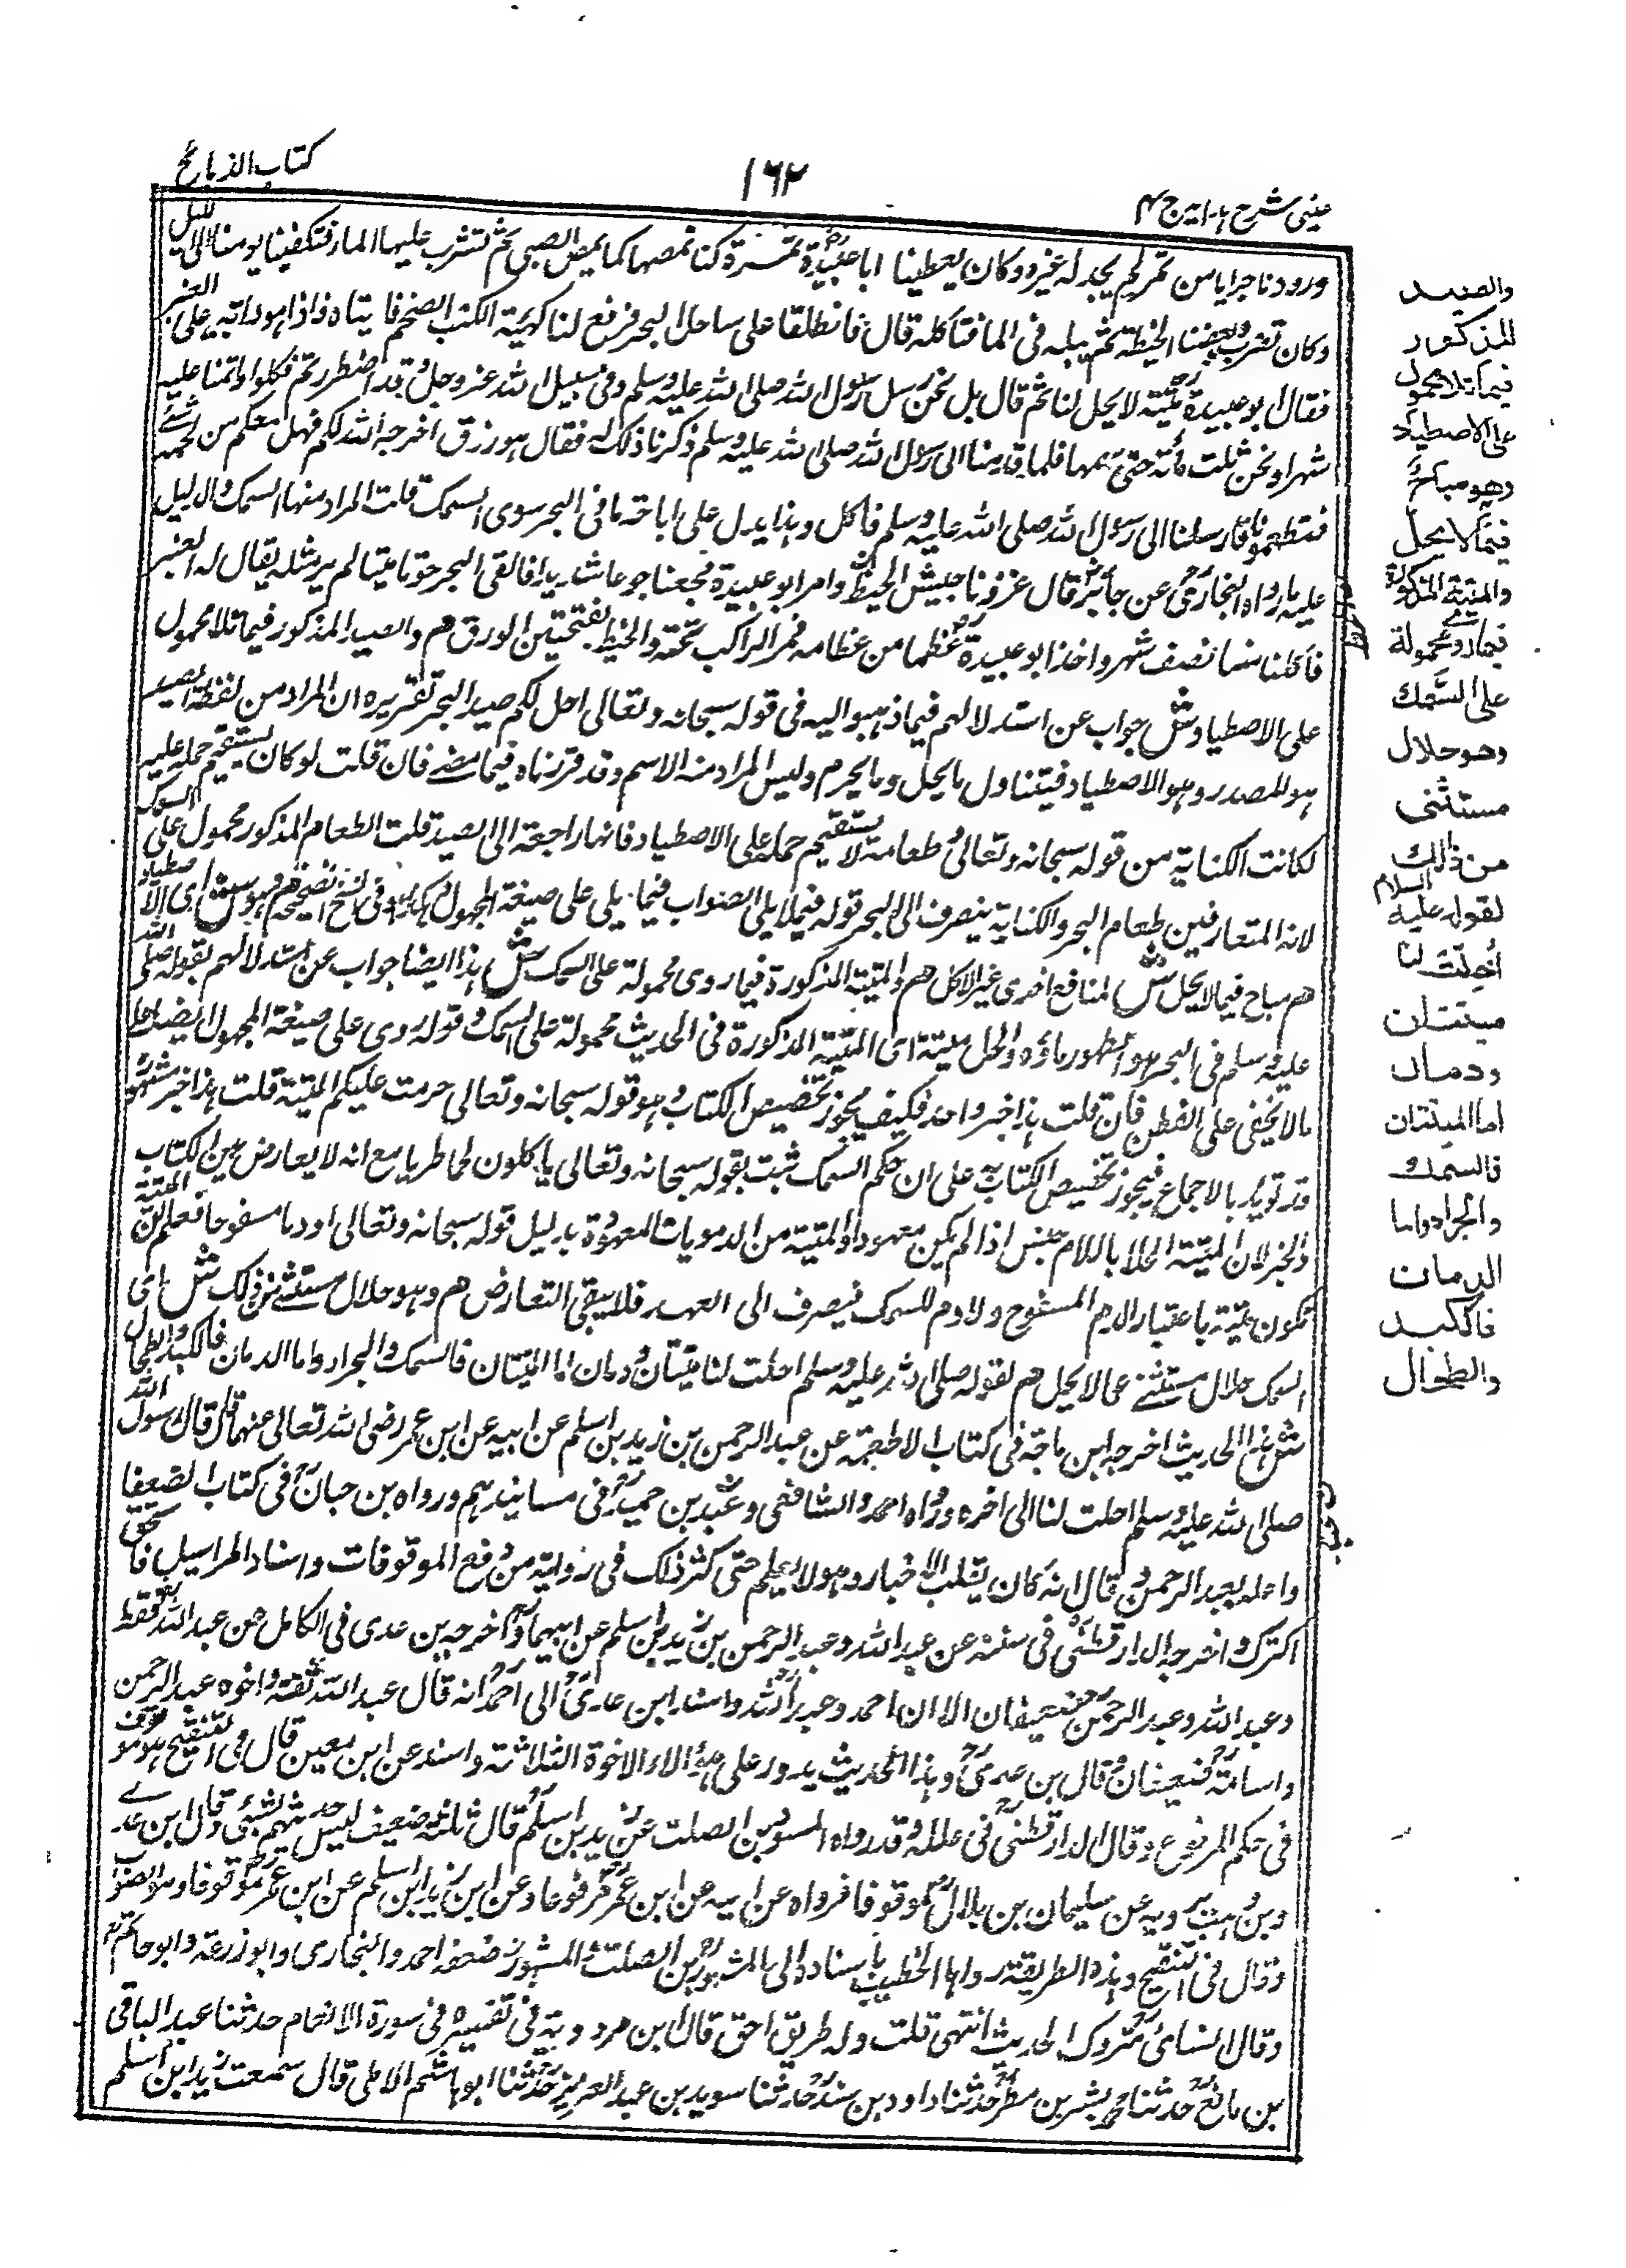 عينى شرح هدايه ج ٤
١٦٢
كتاب الذبائح
وزودنا جرابا من تمر لم يجد له غيره وكان يعطينا ابا عبيدة تمرة تمرة كنا نمصها كما يمص الصبى ثم نشرب عليها الماء فتكفينا يومنا الى الليل
وكان نضرب بعصينا الخبط ثم نبله فى الماء فنأكله قال فانطلقنا على ساحل البحر فرفع لنا كهيئة الكثيب الضخم فاتيناه فاذا هو دابة على العنبر
فقال ابو عبيدة ميتة لا يحل لنا ثم قال بل نحن رسل رسول الله صلى الله عليه وسلم وفى سبيل الله عز وجل وقد اضطررتم فكلوا واقمنا عليه
شهرا ونحن ثلث مائة حتى سمنا فلما قدمنا الى رسول الله صلى الله عليه وسلم ذكرنا ذلك له فقال هو رزق اخرجه الله لكم فهل معكم من لحمه شئ
فتطعمونا فارسلنا الى رسول الله صلى الله عليه وسلم فاكل وهذا يدل على اباحة ما فى البحر سوى السمك قلت المراد منها السمك والدليل
عليه ما رواه البخارى عن جابر قال غزونا جيش الخبط وامر ابو عبيدة فجعنا جوعا شديدا فالقى البحر حوتا ميتا لم ير مثله يقال له العنبر
فاكلنا منها نصف شهر واخذ ابو عبيدة عظما من عظامه فمر الراكب تحته والخبط بفتحتين الورق هم والصيد المذكور فيما تلا محمول
على الاصطياد ش جواب عن استدلالهم فيما ذهبوا اليه فى قوله سبحانه وتعالى احل لكم صيد البحر تقريره ان المراد من لفظة الصيد
هو المصدر وهو الاصطياد فيتناول ما يحل وما يحرم وليس المراد منه الاسم وقد قررناه فيما مضى فان قلت لو كان يستقيم حمله عليه
لكانت الكناية من قوله سبحانه وتعالى وطعامه لا يستقيم حمله على الاصطياد فانها راجعة الى الصيد قلت الطعام المذكور محمول على السمك
لانه المتعارف من طعام البحر والكناية ينصرف الى البحر قوله فيما لا يلى الصواب فيما يلى على صيغة المجهول هكذا وفى نسخ صحيحة هم وهو ش اى الاصطياد
هم مباح فيما لا يحل ش لمنافع اخرى غير الاكل هم والميتة المذكورة فيما روى محمولة على السمك ش هذا ايضا جواب عن استدلالهم بقوله صلى الله
عليه وسلم فى البحر هو الطهور ماؤه والحل ميتته اى الميتة المذكورة فى الحديث محمولة على السمك وقوله روى على صيغة المجهول ايضا على
مالا يخفى على الفطن فان قلت هذا خبر واحد فكيف يجوز تخصيص الكتاب وهو قوله سبحانه وتعالى حرمت عليكم الميتة قلت هذا خبر مشهور
وقد تويد بالاجماع فيجوز تخصيص الكتاب به على ان حكم السمك ثبت بقوله سبحانه وتعالى ياكلون لحما طريا مع انه لا يعارض بين الكتاب
والخبر لان الميتة المحلا باللام جنس اذا لم يكن معهودا والميتة من الدمويات المعهودة بدليل قوله سبحانه وتعالى او دما مسفوحا فعلم ان الميتة
تكون ميتة باعتبار الدم المسفوح ولا دم للسمك فينصرف الى العهد فلا يبقى التعارض هم وهو حلال مستثنى من ذلك ش اى
السمك حلال مستثنى مما لا يحل هم لقوله صلى الله عليه وسلم احلت لنا ميتتان ودمان اما الميتتان فالسمك والجراد واما الدمان فالكبد والطحال
ش هذا الحديث اخرجه ابن ماجة فى كتاب الاطعمة عن عبد الرحمن بن زيد بن اسلم عن ابيه عن ابن عمر رضى الله تعالى عنهما قال قال رسول الله
صلى الله عليه وسلم احلت لنا الى اخره ورواه احمد والشافعى وعبد بن حميد فى مسانيدهم ورواه بن حبان فى كتاب الضعفا
واعله بعبد الرحمن وقال انه كان يقلب الاخبار وهو لا يعلم حتى كثر ذلك فى روايته من رفع الموقوفات واسناد المراسيل فاستحق
الترك واخرجه الدارقطنى فى سننه عن عبد الله وعبد الرحمن بن زيد بن اسلم عن ابيهما واخرجه بن عدى فى الكامل عن عبد الله فقط
وعبد الله وعبد الرحمن ضعيفان الا ان احمد وعبد الله واسند ابن عدى الى احمد انه قال عبد الله ثقة واخوه عبد الرحمن
واسامة ضعيفان وقال بن عدى وهذا الحديث يدور على هؤلاء الاخوة الثلاثة واسند عن ابن معين قال فى التنقيح هو موقوف
فى حكم المرفوع وقال الدارقطنى فى علله وقد رواه المسور بن الصلت عن زيد بن اسلم قال ثلاثة ضعيف ليس حديثهم بشئ وقال ابن عدى
وبن وهب يرويه عن سليمان بن بلال موقوفا فرواه عن ابيه عن ابن عمر مرفوعا وعن ابن زيد ابن اسلم عن ابن عمر موقوفا وهو الصواب
وقال فى التنقيح وهذه الطريقة رواها الخطيب باسناده الى بالمشهور بن الصلت والمشهور ضعفه احمد والبخارى وابو زرعة وابو حاتم
وقال النسائ متروك الحديث انتهى قلت وله طريق احق قال ابن مردوية فى تفسيره فى سورة الانعام حدثنا عبد الباقى
بن مانع حدثنا محمد بشر بن مطر حدثنا داود بن سند حدثنا سويد بن عبد العزيز حدثنا ابو هاشم الاملى قال سمعت زيد ابن اسلم
والصيد
المذكور
فيما تلا محمول
على الاصطياد
وهو مباح
فيما لا يحل
والميتة المذكورة
فيما روى محمولة
على السمك
وهو حلال
مستثنى
من ذلك
لقوله عليه السلام
احلت لنا
ميتتان
ودمان
اما الميتتان
فالسمك
والجراد واما
الدمان
فالكبد
والطحال